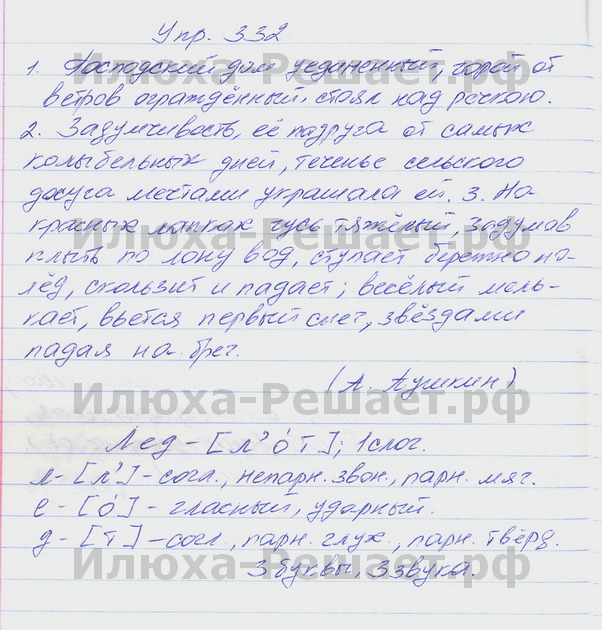 Упр. 332
1. Господский дом уединенный, горой от
ветров ограждённый, стоял над речкою.
2. Задумчивость, её подруга от самых
колыбельных дней, теченье сельского
досуга мечтами украшала ей. 3. На
красных лапках гусь тяжёлый, задумав
плыть по лону вод, ступает бережно на
лёд, скользит и падает; весёлый мель-
кает, вьется первый снег, звёздами
падая на брег.
(А. Пушкин)
Лед - [л' о́ т]; 1 слог.
л - [л'] - согл., непарн. звон., парн. мяг.
е - [о́] - гласный, ударный.
д - [т] - согл., парн. глух., парн. твёрд.
3 буквы, 3 звука.
Илюха-Решает.рф
Илюха-Решает.рф
Илюха-Решает.рф
Илюха-Решает.рф
Илюха-Решает.рф